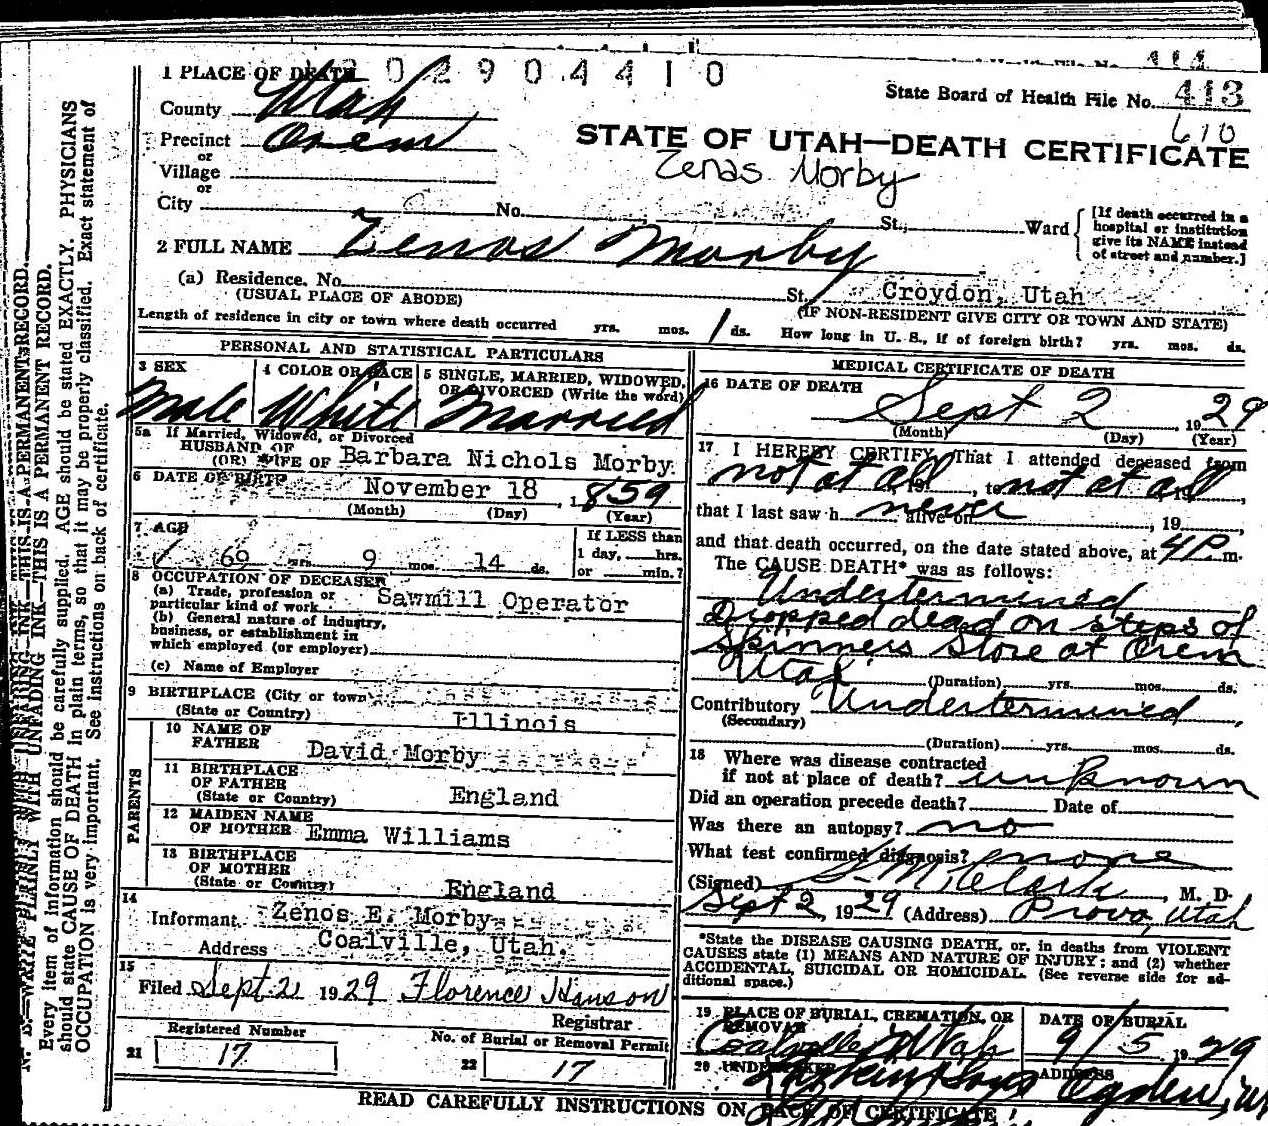 1 PLACE OF DEATH 2 9 0 4 4 1 0
414
State Board of Health File No. 413
610
County Utah
Precinct Orem
or
Village
or
City No. St. Ward
STATE OF UTAH—DEATH CERTIFICATE
Zenas Morby
[If death occurred in a hospital or institution give its NAME instead of street and number.]
2 FULL NAME Zenos Morby
(a) Residence. No. St. Croydon, Utah
(USUAL PLACE OF ABODE) (IF NON-RESIDENT GIVE CITY OR TOWN AND STATE)
Length of residence in city or town where death occurred yrs. mos. 1 ds. How long in U. S., if of foreign birth? yrs. mos. ds.
PERSONAL AND STATISTICAL PARTICULARS
3 SEX 4 COLOR OR RACE 5 SINGLE, MARRIED, WIDOWED, OR DIVORCED (Write the word)
Male White Married
5a If Married, Widowed, or Divorced
HUSBAND OF
(OR) WIFE OF Barbara Nichols Morby.
6 DATE OF BIRTH November 18, 1859
(Month) (Day) (Year)
7 AGE If LESS than
69 yrs. 9 mos. 14 ds. 1 day, hrs.
or min.?
8 OCCUPATION OF DECEASED
(a) Trade, profession or
particular kind of work Sawmill Operator
(b) General nature of industry,
business, or establishment in
which employed (or employer)
(c) Name of Employer
9 BIRTHPLACE (City or town)
(State or Country) Illinois
PARENTS
10 NAME OF
FATHER David Morby
11 BIRTHPLACE
OF FATHER
(State or Country) England
12 MAIDEN NAME
OF MOTHER Emma Williams
13 BIRTHPLACE
OF MOTHER
(State or Country) England
14
Informant Zenos E. Morby
Address Coalville, Utah.
15
Filed Sept 2 1929 Florence Hanson
Registrar
Registered Number No. of Burial or Removal Permit
21 17 22 17
MEDICAL CERTIFICATE OF DEATH
16 DATE OF DEATH
Sept 2, 1929
(Month) (Day) (Year)
17 I HEREBY CERTIFY, That I attended deceased from
not at all, 19, to not at all 19,
that I last saw h never alive on, 19,
and that death occurred, on the date stated above, at 4P.m.
The CAUSE DEATH* was as follows:
Undertermined
Dropped dead on steps of
Skinners Store at Orem
Utah. (Duration) yrs. mos. ds.
Contributory Undertermined,
(Secondary)
(Duration) yrs. mos. ds.
18 Where was disease contracted
if not at place of death? unknown
Did an operation precede death? Date of
Was there an autopsy? no
What test confirmed diagnosis? none
(Signed) Clark, M. D.
Sept 2, 1929 (Address) Provo, Utah
*State the DISEASE CAUSING DEATH, or, in deaths from VIOLENT
CAUSES state (1) MEANS AND NATURE OF INJURY; and (2) whether
ACCIDENTAL, SUICIDAL OR HOMICIDAL. (See reverse side for ad-
ditional space.)
19 PLACE OF BURIAL, CREMATION, OR REMOVAL DATE OF BURIAL
Coalville Utah 9/5 1929
20 UNDERTAKER ADDRESS
Larkin & Sons Ogden, Ut
READ CAREFULLY INSTRUCTIONS ON BACK OF CERTIFICATE
N. B.—WRITE PLAINLY WITH UNFADING INK—THIS IS A PERMANENT RECORD.
Every item of information should be carefully supplied. AGE should be stated EXACTLY. PHYSICIANS
should state CAUSE OF DEATH in plain terms, so that it may be properly classified. Exact statement of
OCCUPATION is very important. See instructions on back of certificate.